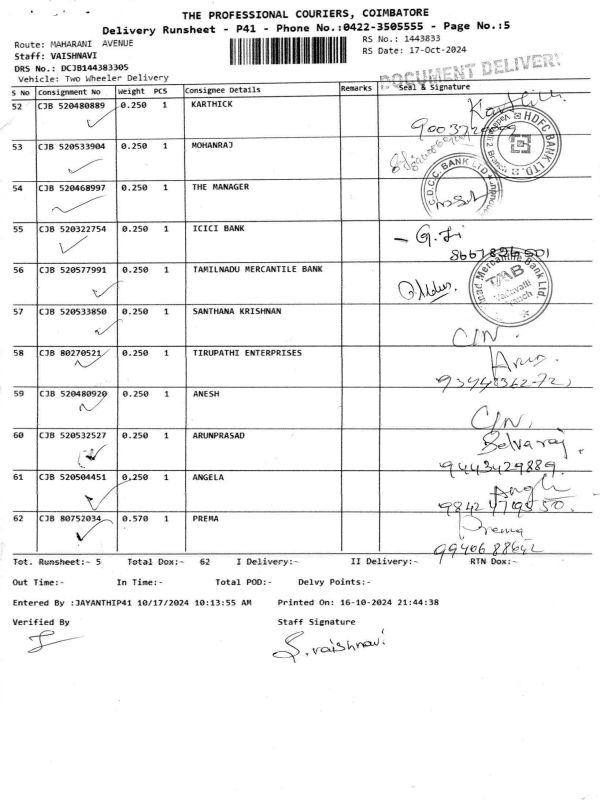 THE PROFESSIONAL COURIERS, COIMBATORE
Delivery Runsheet - P41 - Phone No.:0422-3505555 - Page No.:5
Route: MAHARANI AVENUE
RS No.: 1443833
Staff: VAISHNAVI
RS Date: 17-Oct-2024
DRS No.: DCJB144383305
Vehicle: Two Wheeler Delivery
DOCUMENT DELIVERY
S No Consignment No Weight PCS Consignee Details Remarks Seal & Signature
52 CJB 520480889 0.250 1 KARTHICK
53 CJB 520533904 0.250 1 MOHANRAJ
HDFC BANK LTD.
54 CJB 520468997 0.250 1 THE MANAGER
C.D.C.C. BANK LTD
55 CJB 520322754 0.250 1 ICICI BANK
56 CJB 520577991 0.250 1 TAMILNADU MERCANTILE BANK
TMB
Mercantile Bank Ltd
57 CJB 520533850 0.250 1 SANTHANA KRISHNAN
58 CJB 80270521 0.250 1 TIRUPATHI ENTERPRISES
Arun
59 CJB 520480920 0.250 1 ANESH
60 CJB 520532527 0.250 1 ARUNPRASAD
Selvaraj
9443429889.
61 CJB 520504451 0.250 1 ANGELA
62 CJB 80752034 0.570 1 PREMA
Prema
9940688642
Tot. Runsheet:- 5 Total Dox:- 62 I Delivery:- II Delivery:- RTN Dox:-
Out Time:- In Time:- Total POD:- Delvy Points:-
Entered By :JAYANTHIP41 10/17/2024 10:13:55 AM Printed On: 16-10-2024 21:44:38
Verified By Staff Signature
S.vaishnavi